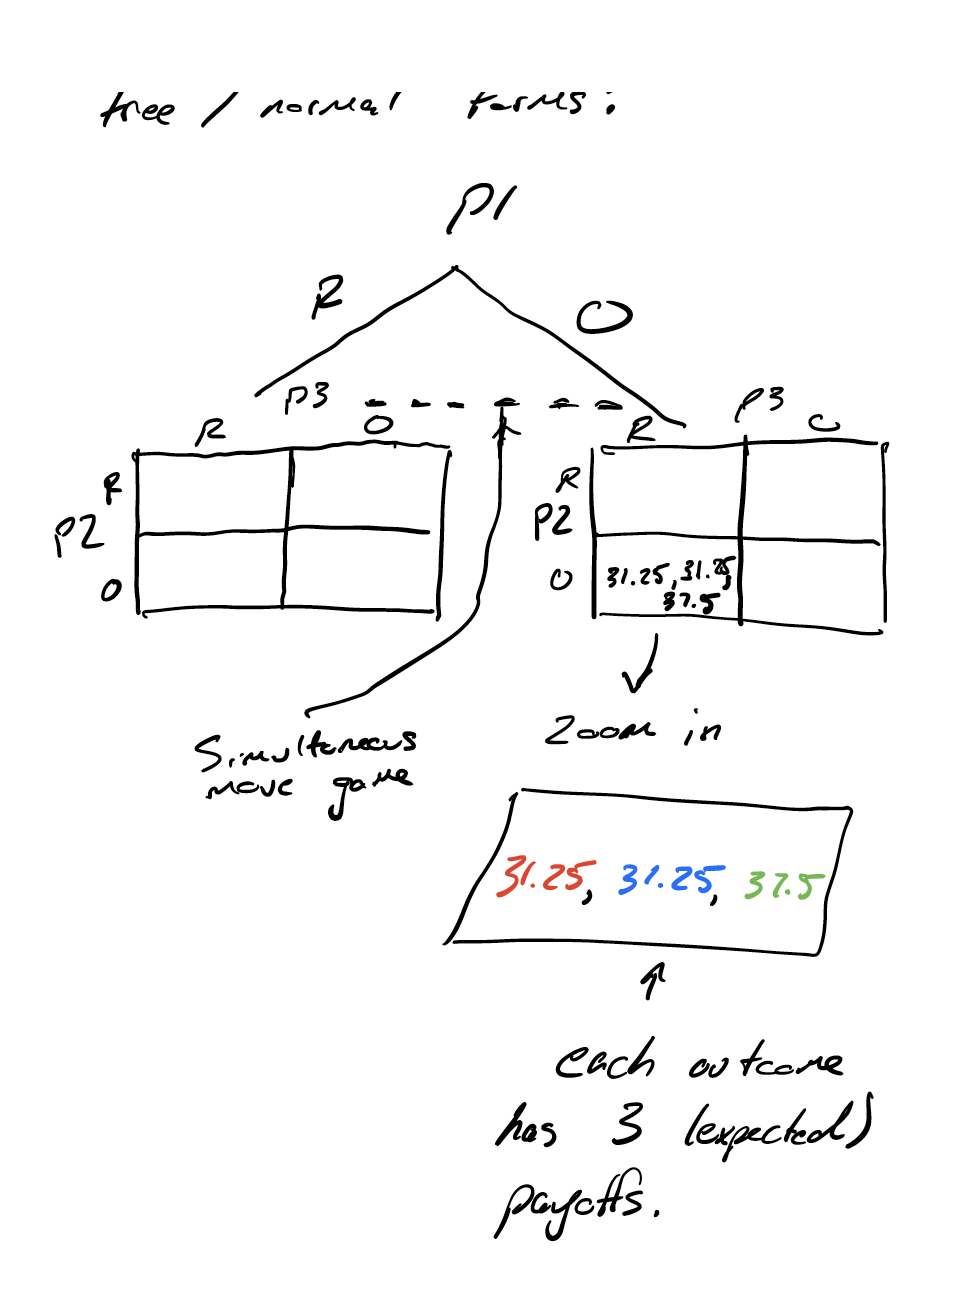 tree / normal forms:
P1
R
O
P3
P3
R
O
R
O
R
R
P2
P2
O
O
31.25, 31.25,
37.5
Zoom in
Simultaneous
move game
31.25, 31.25, 37.5
each outcome
has 3 (expected)
payoffs.